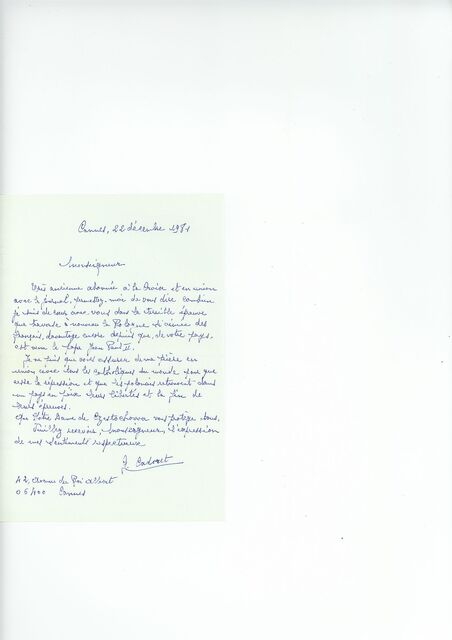 Cannes, 22 décembre 1981
Monseigneur
Très ancienne abonnée à la Croix et en union
avec le journal, permettez-moi de vous dire combien
je suis de cœur avec vous dans la terrible épreuve
que traverse à nouveau la Pologne si aimée des
français, davantage encore depuis que, de votre pays,
est venu le Pape Jean Paul II.
Je ne puis que vous assurer de ma prière en
union avec tous les catholiques du monde pour que
cesse la répression et que les polonais retrouvent dans
un pays en paix leurs libertés et la fin de
leurs épreuves.
Que Notre Dame de Czestochowa vous protège tous.
Veuillez recevoir, Monseigneur, l'expression
de mes sentiments respectueux
42, Avenue du Roi Albert
06400 Cannes